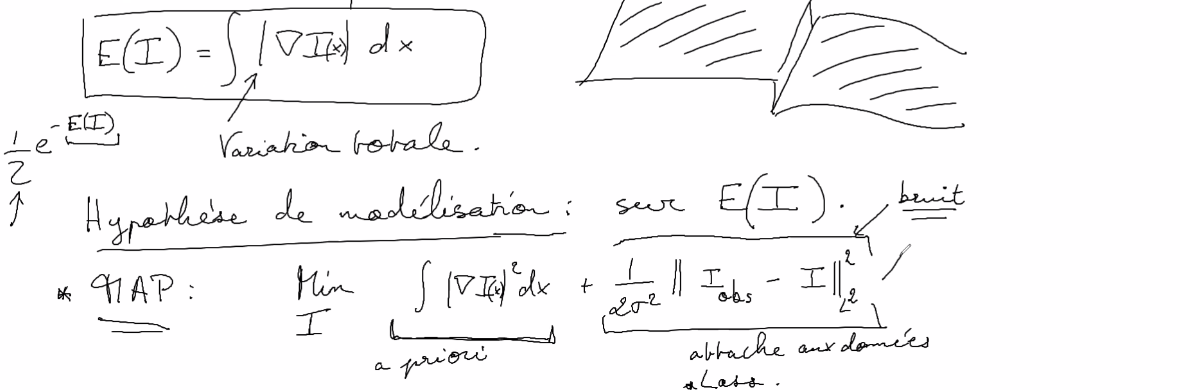 E(I) = ∫ |∇I(x)| dx
1/2 e^{-E(I)}
Variation totale.
Hypothèse de modélisation : sur E(I).
bruit
* MAP : Min_I ∫ |∇I(x)|² dx + 1/(2σ²) ‖ I_obs - I ‖²_{L²}
a priori
attache aux données
* Loss.